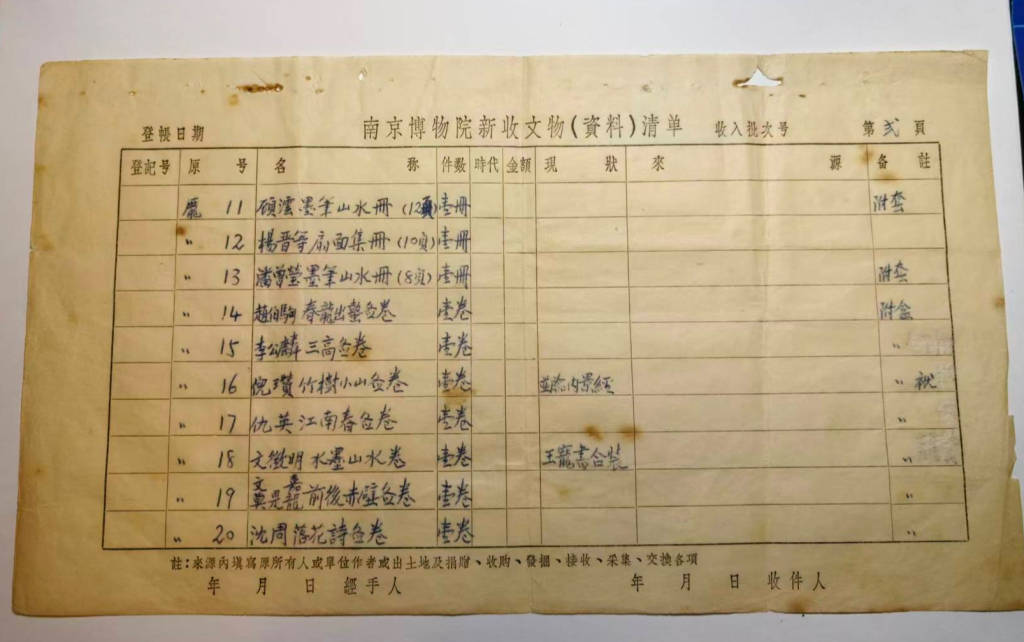 登帳日期 南京博物院新收文物(資料)清单 收入批次号 第 弍 頁
登記号 原号 名称 件数 時代 金額 現狀 來源 备註
龐 11 顾澐墨笔山水冊(12頁) 壹冊 附套
〃 12 楊晋等扇面集冊(10頁) 壹冊
〃 13 潘曾瑩墨笔山水冊(8頁) 壹冊 附套
〃 14 趙伯駒 春龍出蟄畣卷 壹卷 附盒
〃 15 李公麟 三高畣卷 壹卷 〃
〃 16 倪瓚 竹樹小山畣卷 壹卷 内景經 〃
〃 17 仇英 江南春畣卷 壹卷 〃
〃 18 文徵明 水墨山水卷 壹卷 王寵書合裝 〃
〃 19 文嘉 莫是龍 前後赤壁畣卷 壹卷 〃
〃 20 沈周 落花詩畣卷 壹卷 〃
註:來源內塡寫原所有人或單位作者或出土地及捐贈、收购、發掘、接收、采集、交換各項
年 月 日 經手人 年 月 日 收件人